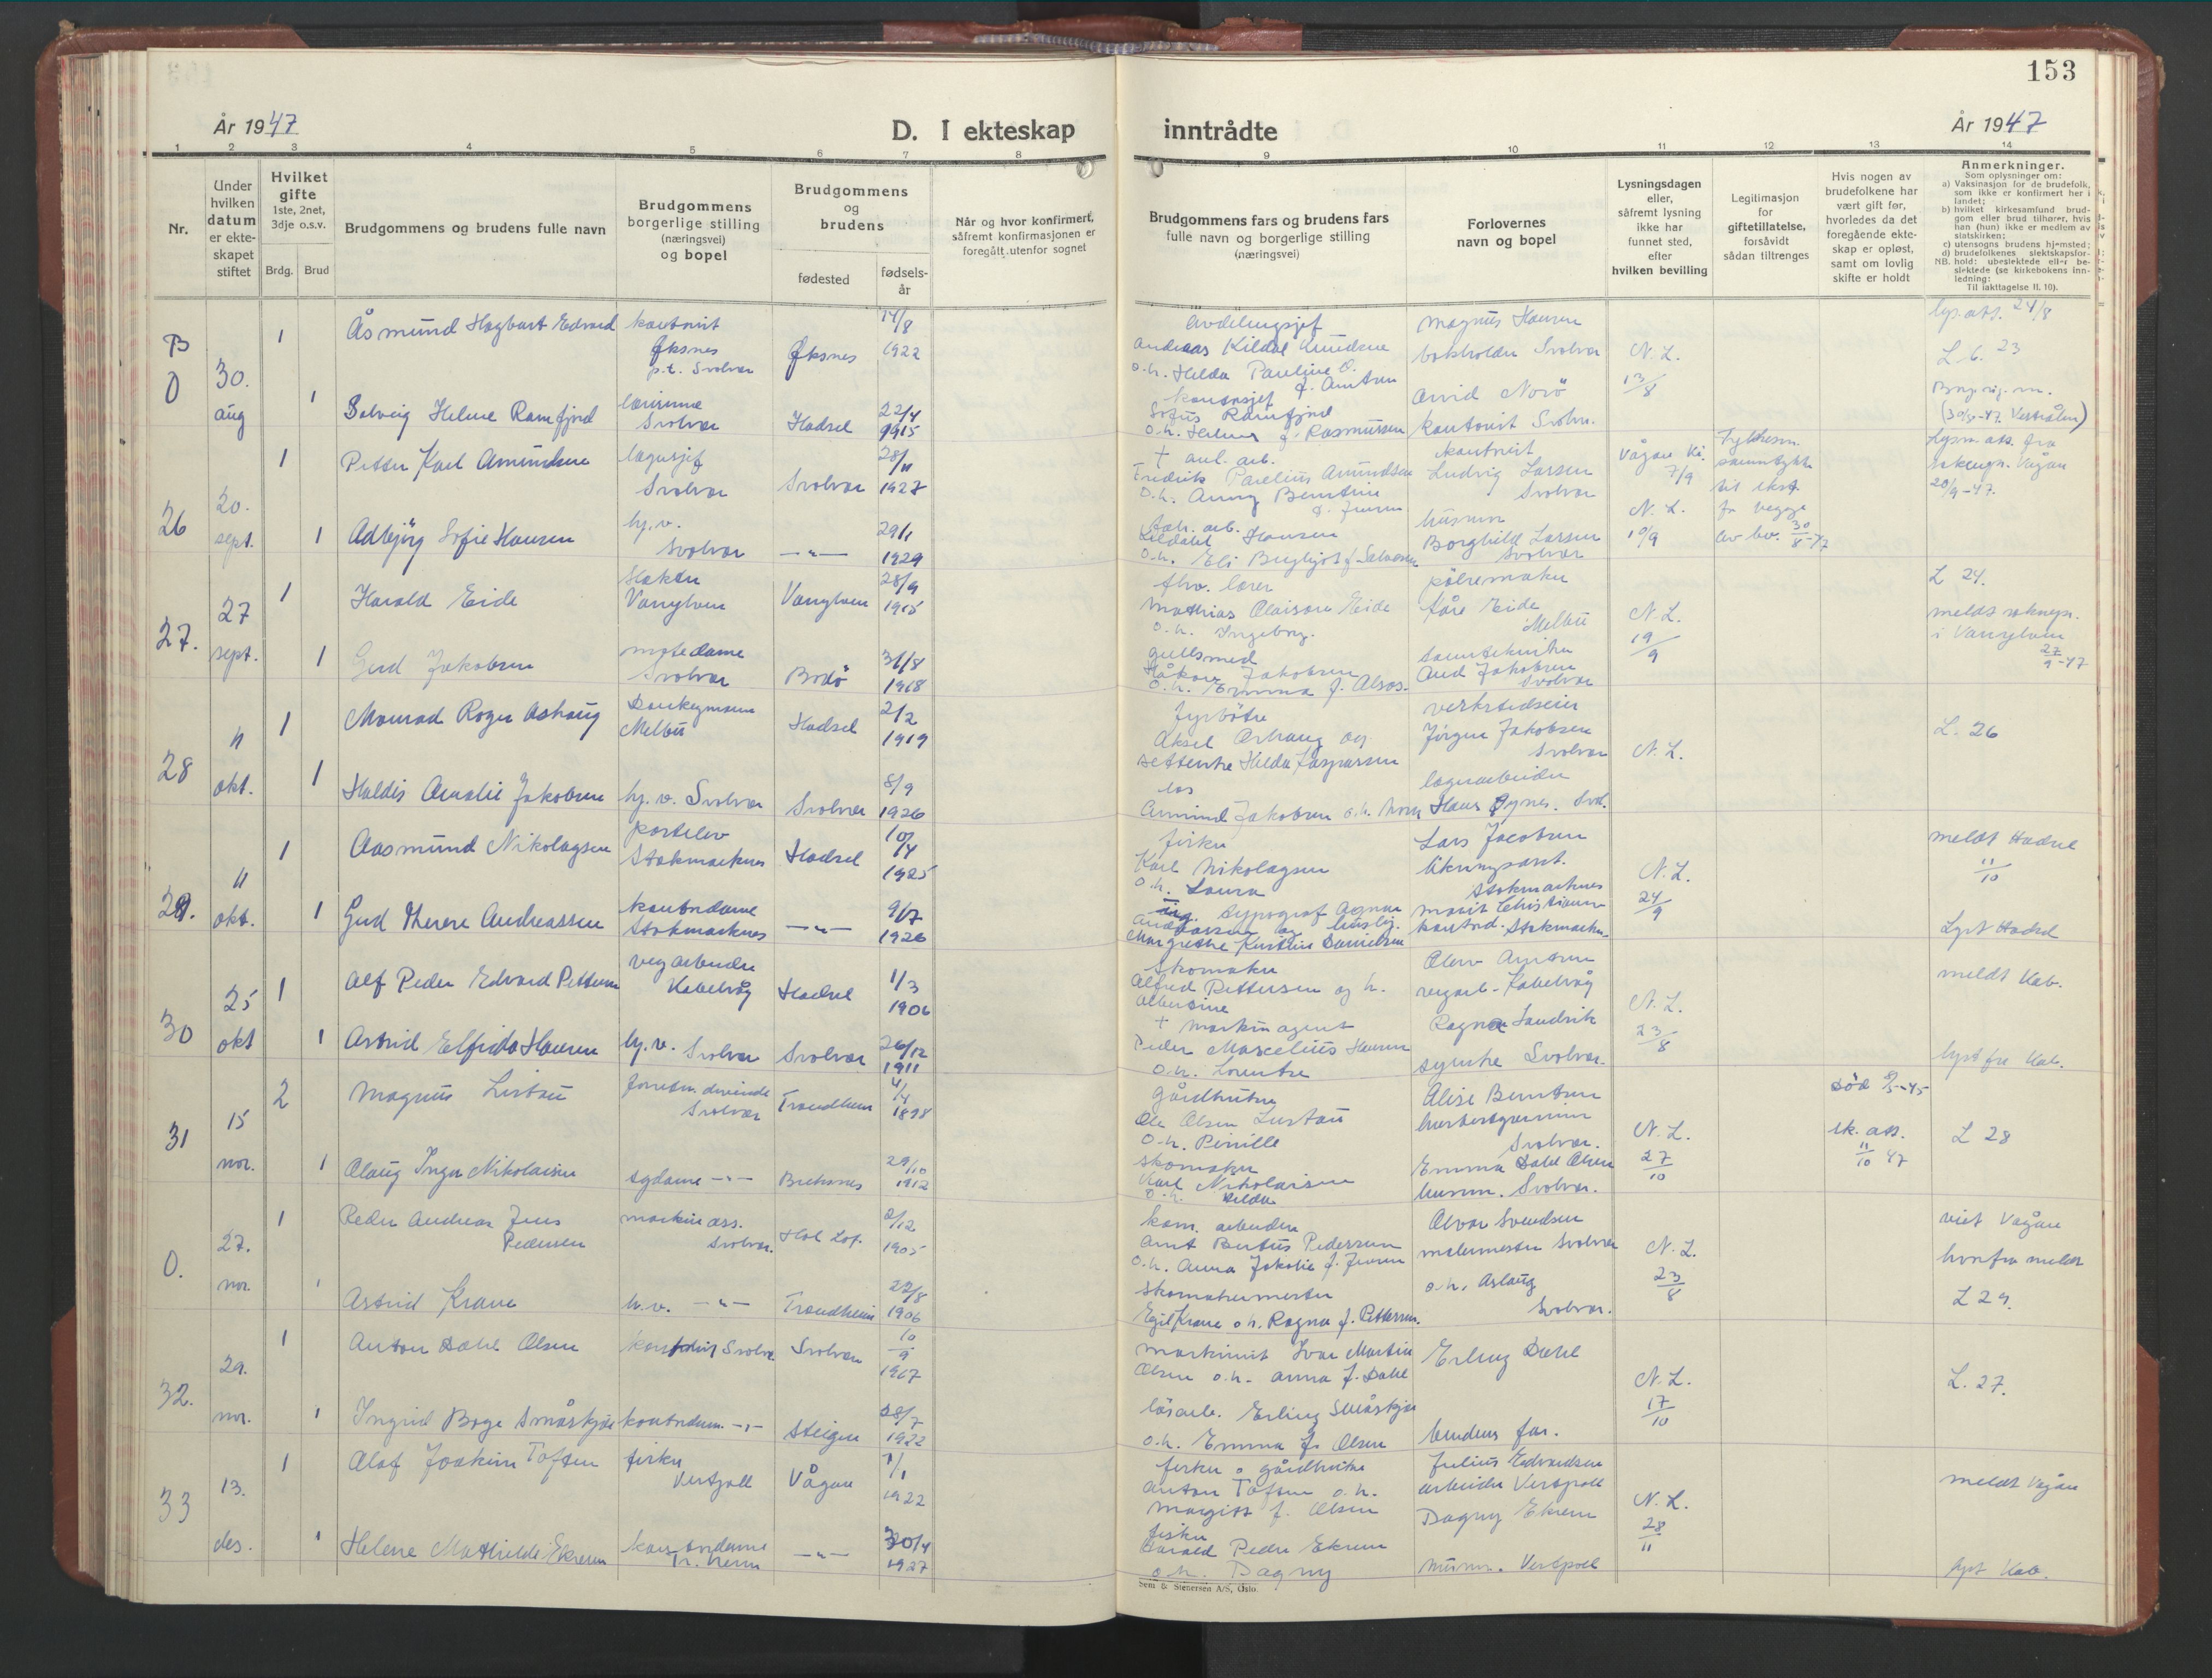 153
År 1947
D. I ekteskap inntrådte
År 1947
1 2 3 4 5 6 7 8 9 10 11 12 13 14
Nr.
Under
hvilken
datum
er ekte-
skapet
stiftet
Hvilket
gifte
1ste, 2net,
3dje o.s.v.
Brdg. Brud
Brudgommens og brudens fulle navn
Brudgommens
borgerlige stilling
(næringsvei)
og bopel
Brudgommens
og
brudens
fødested
fødsels-
år
Når og hvor konfirmert,
såfremt konfirmasjonen er
foregått utenfor sognet
Brudgommens fars og brudens fars
fulle navn og borgerlige stilling
(næringsvei)
Forlovernes
navn og bopel
Lysningsdagen
eller,
såfremt lysning
ikke har
funnet sted,
efter
hvilken bevilling
Legitimasjon
for
giftetillatelse,
forsåvidt
sådan tiltrenges
Hvis nogen av
brudefolkene har
vært gift før,
hvorledes da det
foregående ekte-
skap er opløst,
samt om lovlig
skifte er holdt
Anmerkninger.
Som oplysninger om:
a) Vaksinasjon for de brudefolk,
som ikke er konfirmert her i
landet;
b) hvilket kirkesamfund brud-
gom eller brud tilhører, hvis
han (hun) ikke er medlem av
statskirken;
c) utensogns brudens hjemsted;
d) brudefolkenes slektskapsfor-
NB. hold: ubeslektede eller be-
slektede (se kirkebokens inn-
ledning:
Til iakttagelse II. 10).
B
O
30.
aug
1
Åsmund Hagbart Edvard
kontorist
Øksnes
p.t. Svolvær
Øksnes
14/8
1922
Avdelingssjef
Andreas Kildal Knudsen
o.h. Helda Pauline O.
f. Arntsen
Magnus Hansen
bokholder Svolvær
N.L.
13/8
lys.att. 24/8
L 6. 23
1
Solveig Helene Ramfjord
lærerinne
Svolvær
Hadsel
22/4
1915
kontorsjef
Sofus Ramfjord
o.h. Helene f. Rasmussen
Arvid Norø
kontorist Svolv.
(30/8-47 Vesterålen)
26
20.
sept.
1
Petter Karl Amundsen
lagersjef
Svolvær
Svolvær
28/11
1927
+ anl. arb.
Fredrik Parelius Amundsen
o.h. Anny Berntine
f. Jensen
kontorist
Ludvig Larsen
Svolvær
Vågan Ki.
7/9
Fylkesm.
samtykke
til ekt.
for begge
av bv. 30/8-47
Lysn.att. fra
sokneps. Vågan
20/9-47.
1
Adbjörg Sofie Hansen
hj.v.
Svolvær
—"—
29/1
1929
Hansen
husmor
Borghild Larsen
Svolvær
N.L.
10/9
27.
27
sept.
1
Harald Eide
Slakter
Vanylven
Vanylven
28/9
1915
fhv. lærer
Mathias Olaison Eide
o.h. Ingeborg.
pølsemaker
Kåre Eide
Melbu
N.L.
19/9
L 24.
meldt sokneps.
i Vanylven
27/9-47
1
Gerd Jakobsen
motedame
Svolvær
Bodö
31/8
1918
gullsmed
Håkon Jakobsen
o.h. Emma f. Alsos.
tanntekniker
Aud Jakobsen
Svolvær
28
11
okt.
1
Monrad Roger Ashaug
Donkeymann
Melbu
Hadsel
2/2
1919
fyrbøter
Aksel Ashaug og
Hilda Kaspersen
verkstedseier
Jørgen Jakobsen
Svolvær
N.L.
L. 26
1
Haldis Amalie Jakobsen
hj.v. Svolvær
Svolvær
8/9
1926
los
Amund Jakobsen o.h.
lagerarbeider
Hans Svol.
29.
11
okt.
1
Aasmund Nikolaysen
postelev
Stokmarknes
Hadsel
10/4
1925
fisker
Karl Nikolaysen
o.h. Laura
Lars Jacobsen
likningsass.
Stokmarknes
N.L.
24/9
meldt Hadsel
11/10
1
Gerd Therese Andreassen
kontordame
Stokmarknes
—"—
9/7
1926
typograf Agnar
Andreassen og
Margrethe Kristine Danielsen
Marit Christiansen
kontord. Stokmarkn.
Lyst Hadsel
30
25
okt
1
Alf Peder Edvard Pettersen
vegarbeider
Kabelvåg
Hadsel
1/3
1906
Skomaker
Alfred Pettersen og h.
Albertine
Olav Arntsen
vegarb. Kabelvåg
N.L.
23/8
meldt Kab.
1
Astrid Elfrida Hansen
hj.v. Svolvær
Svolvær
26/12
1911
+ maskinagent
Peder Marcelius Hansen
o.h. Lorentse
Ragna Sandvik
syerske Svolvær.
lyst fra Kab.
31
15
nov.
2
Magnus Listau
forretn. drivende
Svolvær
Trondheim
4/4
1898
gårdbruker
Ole Olsen Listau
o.h. Pernille
Alise Berntsen
Svolvær.
N.L.
27/10
död 9/5-45
sk. att.
11/10 47
L 28
1
Olaug Inger Nikolaisen
sydame —"—
29/10
1912
skomaker
Karl Nikolaisen
o.h. Hilda
Emma Dahl Olsen
husm. Svolvær.
O.
27.
nov.
1
Peder Andreas Jens
Pedersen
maskin ass.
Svolvær.
Hol Lof.
2/12
1905
kom. arbeider
Arnt Bertus Pedersen
o.h. Anna Jakobie f. Jensen
Alvar Svendsen
malermester Svolvær
N.L.
23/8
viet Vågan
hvorfra meldt
L 29.
1
Astrid Krane
h.v. —"—
Trondheim
22/8
1906
skomakermester
Egil Krane o.h. Ragna f. Pettersen.
o.h. Aslaug
Svolvær.
32.
29.
nov.
1
Anton Dahl Olsen
kontorist Svolvær
Svolvær
10/9
1917
maskinist Ivar Martin
Olsen o.h. Anna f. Dahl
Erling Dahl
N.L.
17/10
L. 27.
1
Ingrid Boge Småskjær
kontordame —"—
Steigen
28/7
1922
løsarb. Erling Småskjær
o.h. Emma f. Olsen
brudens far.
33
13.
des.
1
Olaf Joakim Toften
fisker
Vestpoll
Vågan
1/1
1922
fisker o gårdbruker
Anton Toften o.h.
Margit f. Olsen
Julius Edvardsen
arbeider Vestpoll
N.L.
28/11
meldt Vågan
1
Helene Mathilde Ekrem
kontordame
Tr.heim
—"—
30/4
1927
fisker
Harald Peder Ekrem
o.h. Dagny
Dagny Ekrem
husm. Vestpoll
lyst Kab.
Sem & Stenersen A/S, Oslo.